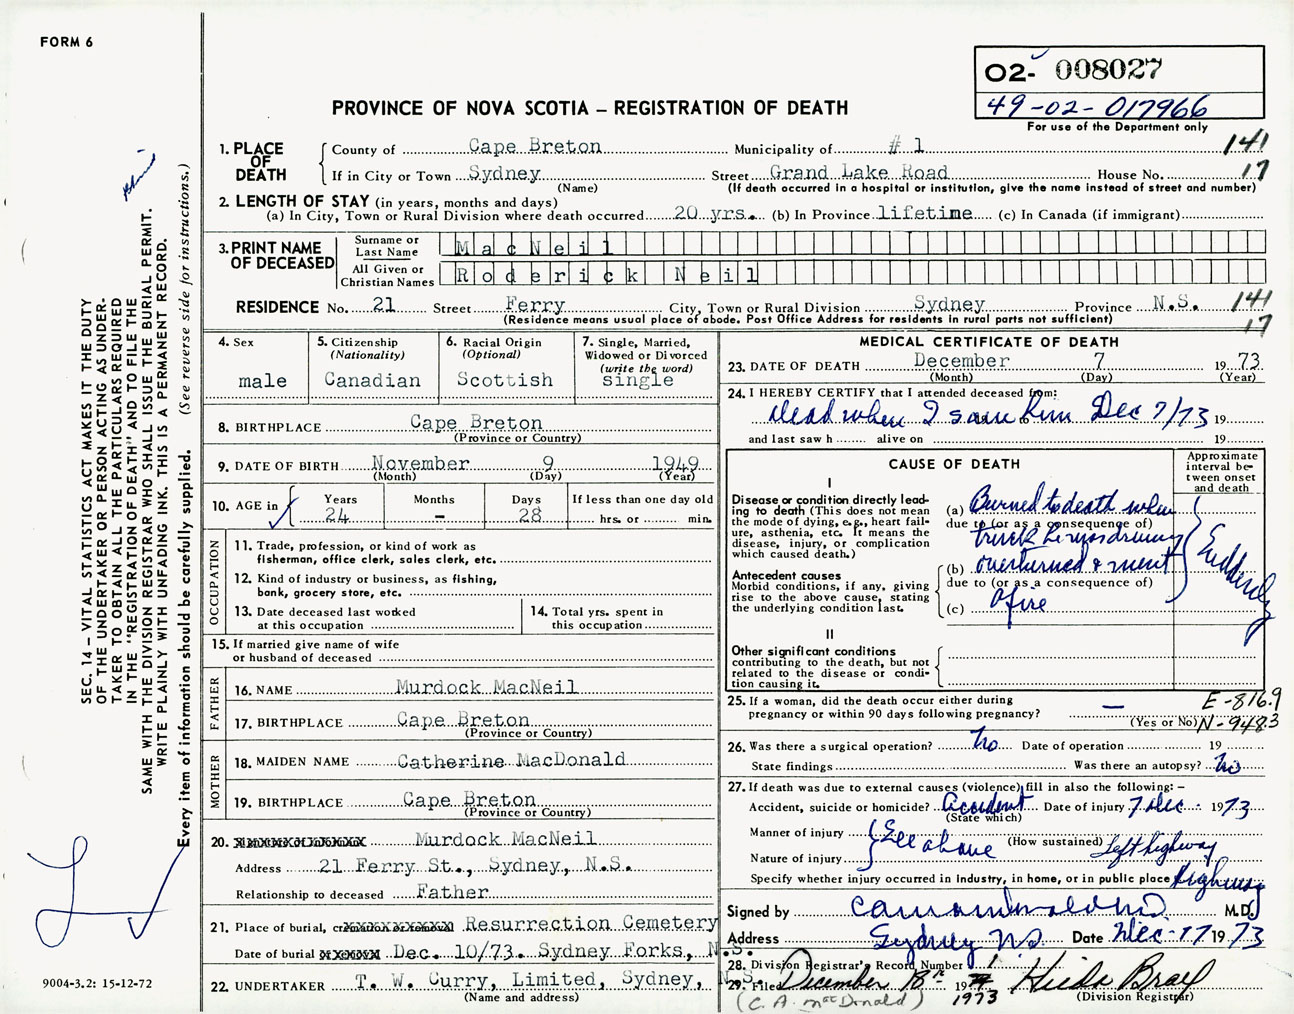 FORM 6
02- 008027
49-02-017966
For use of the Department only
PROVINCE OF NOVA SCOTIA – REGISTRATION OF DEATH
SEC. 14 – VITAL STATISTICS ACT MAKES IT THE DUTY
OF THE UNDERTAKER OR PERSON ACTING AS UNDER-
TAKER TO OBTAIN ALL THE PARTICULARS REQUIRED
IN THE "REGISTRATION OF DEATH" AND TO FILE THE
SAME WITH THE DIVISION REGISTRAR WHO SHALL ISSUE THE BURIAL PERMIT.
WRITE PLAINLY WITH UNFADING INK. THIS IS A PERMANENT RECORD.
Every item of information should be carefully supplied. (See reverse side for instructions.)
1. PLACE OF DEATH
County of Cape Breton Municipality of # 1 141
If in City or Town Sydney Street Grand Lake Road House No. 17
(Name) (If death occurred in a hospital or institution, give the name instead of street and number)
2. LENGTH OF STAY (in years, months and days)
(a) In City, Town or Rural Division where death occurred 20 yrs. (b) In Province lifetime (c) In Canada (if immigrant)
3. PRINT NAME OF DECEASED
Surname or Last Name MacNeil
All Given or Christian Names Roderick Neil
RESIDENCE No. 21 Street Ferry City, Town or Rural Division Sydney Province N.S. 141
(Residence means usual place of abode. Post Office Address for residents in rural parts not sufficient) 17
4. Sex male
5. Citizenship (Nationality) Canadian
6. Racial Origin (Optional) Scottish
7. Single, Married, Widowed or Divorced (write the word) single
8. BIRTHPLACE Cape Breton
(Province or Country)
9. DATE OF BIRTH November 9 1949
(Month) (Day) (Year)
10. AGE in Years 24 Months - Days 28 If less than one day old hrs. or min.
OCCUPATION
11. Trade, profession, or kind of work as fisherman, office clerk, sales clerk, etc.
12. Kind of industry or business, as fishing, bank, grocery store, etc.
13. Date deceased last worked at this occupation
14. Total yrs. spent in this occupation
15. If married give name of wife or husband of deceased
FATHER
16. NAME Murdock MacNeil
17. BIRTHPLACE Cape Breton
(Province or Country)
MOTHER
18. MAIDEN NAME Catherine MacDonald
19. BIRTHPLACE Cape Breton
(Province or Country)
20. Murdock MacNeil
Address 21 Ferry St., Sydney, N.S.
Relationship to deceased Father
21. Place of burial, cremation or removal Resurrection Cemetery
Date of burial Dec. 10/73. Sydney Forks, N.S.
22. UNDERTAKER T. W. Curry, Limited, Sydney, N.S.
(Name and address)
MEDICAL CERTIFICATE OF DEATH
23. DATE OF DEATH December 7 1973
(Month) (Day) (Year)
24. I HEREBY CERTIFY that I attended deceased from:
dead when I saw him Dec 7/73 19
and last saw h alive on 19
CAUSE OF DEATH
Approximate interval between onset and death
I
Disease or condition directly leading to death (This does not mean the mode of dying, e.g., heart failure, asthenia, etc. It means the disease, injury, or complication which caused death.)
(a) Burned to death when
due to (or as a consequence of)
truck he was driving
Antecedent causes
Morbid conditions, if any, giving rise to the above cause, stating the underlying condition last.
(b) overturned & went
due to (or as a consequence of)
(c) afire
Suddenly
II
Other significant conditions contributing to the death, but not related to the disease or condition causing it.
25. If a woman, did the death occur either during pregnancy or within 90 days following pregnancy? —
(Yes or No)
E-816.9
N-948.3
26. Was there a surgical operation? No Date of operation 19
State findings Was there an autopsy? No
27. If death was due to external causes (violence) fill in also the following: –
Accident, suicide or homicide? Accident Date of injury 7 Dec- 1973
(State which)
Manner of injury See above (How sustained) Left highway
Nature of injury
Specify whether injury occurred in industry, in home, or in public place Highway
Signed by M.D.
Address Sydney NS Date Dec-17 1973
28. Division Registrar's Record Number
29. Filed December 18th 1973 Hilda Brael
(Division Registrar)
(C. A. MacDonald)
9004-3.2: 15-12-72